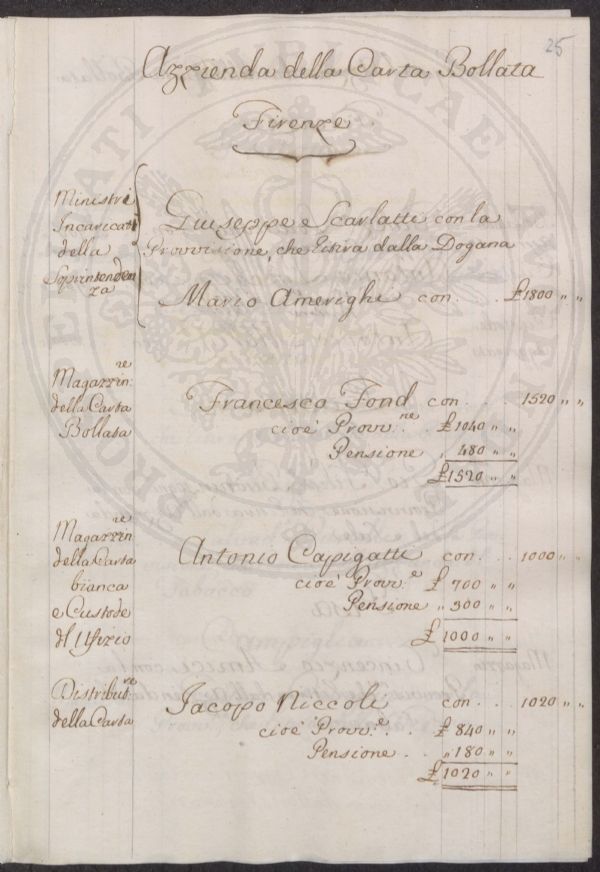 25
Azzienda della Carta Bollata
Firenze
Ministri
Incaricati
della
Soprintenden
za
Giuseppe Scarlatti con la
Provvisione, che tira dalla Dogana
Mario Amerighi con . . £1800 " "
Magazzin:re
della Carta
Bollata
Francesco Fond con . . 1520 " "
cioè Provv:ne £ 1040 " "
Pensione " 480 " "
£1520 " "
Magazzin:re
della Carta
bianca
e Custode
dl Ufizio
Antonio Capigatti con . . 1000 " "
cioè Provv:e £ 700 " "
Pensione " 300 " "
£ 1000 " "
Distribut:re
della Carta
Jacopo Niccoli con . . 1020 " "
cioè Provv:e £ 840 " "
Pensione . . " 180 " "
£ 1020 " "